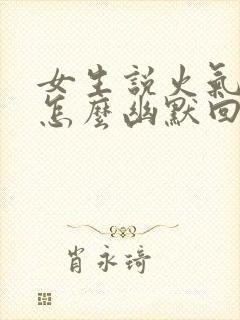 女生説火氣
怎麼幽默回
肖永琦